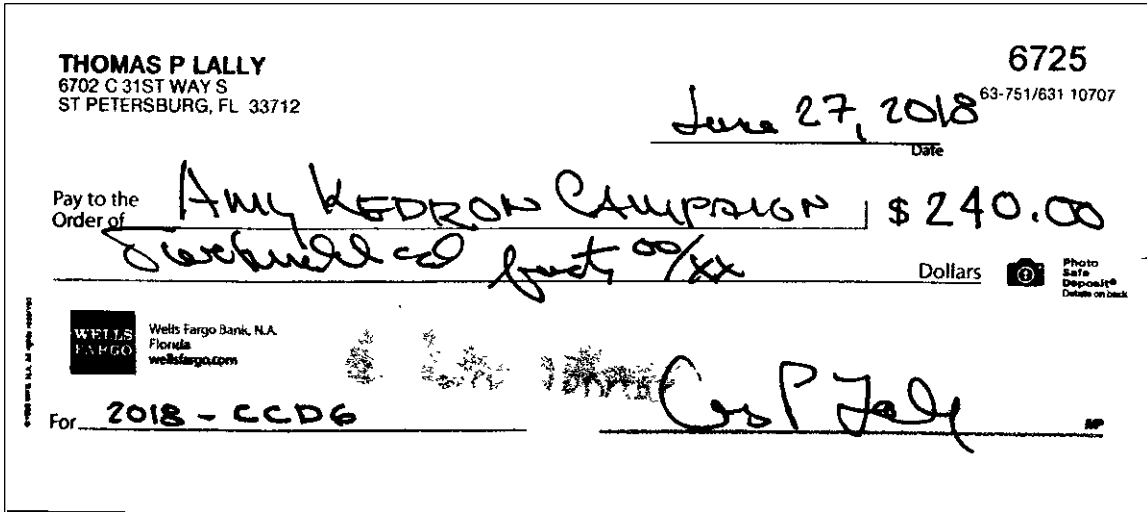 THOMAS P LALLY
6702 C 31ST WAY S
ST PETERSBURG, FL 33712
6725
63-751/631 10707
June 27, 2018
Date
Pay to the
Order of
AMY KEDRON CAMPAIGN $ 240.00
forty 00/xx Dollars
Photo
Safe
Deposit®
Details on back
WELLS
FARGO
Wells Fargo Bank, N.A.
Florida
wellsfargo.com
For 2018 - CCD6
P Lally
MP